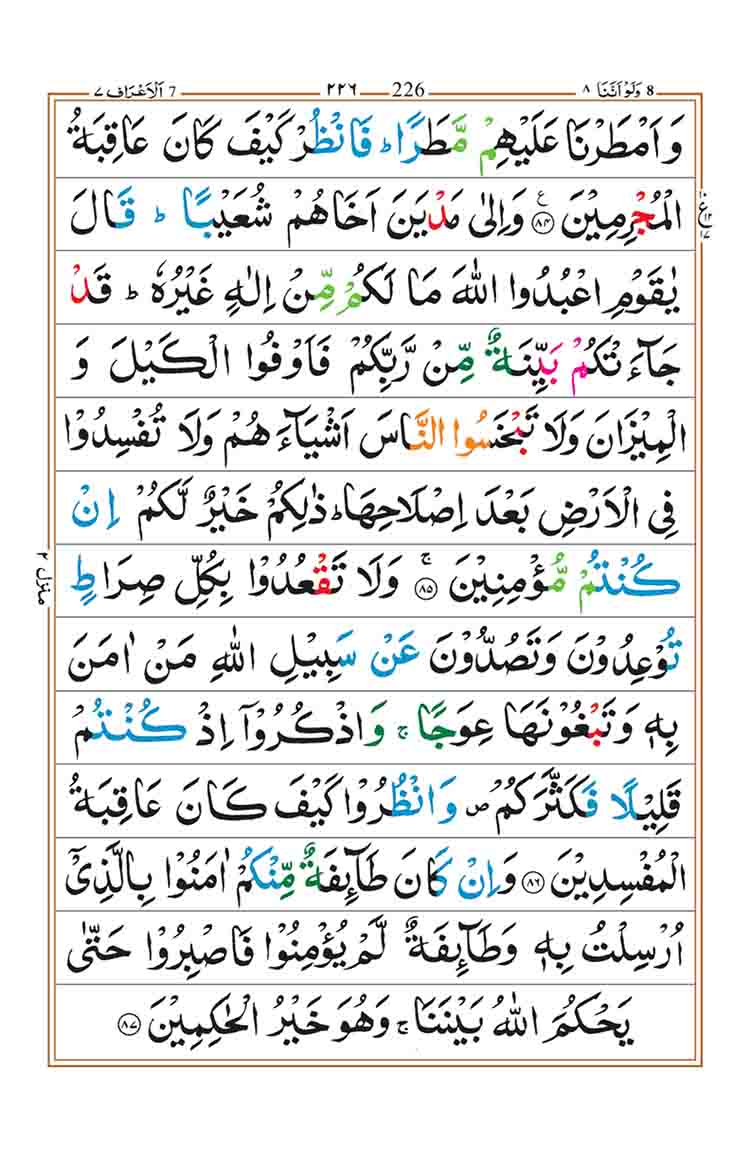 8 وَلَوْ اَنَّنَا ٨ 226 ٢٢٦ 7 اَلْاَعْرَاف ٧
وَاَمْطَرْنَا عَلَيْهِمْ مَّطَرًا ؕ فَانْظُرْ كَيْفَ كَانَ عَاقِبَةُ
الْمُجْرِمِيْنَ ﴿۸۴﴾ ع وَاِلٰى مَدْيَنَ اَخَاهُمْ شُعَيْبًا ؕ قَالَ
يٰقَوْمِ اعْبُدُوا اللّٰهَ مَا لَكُمْ مِّنْ اِلٰهٍ غَيْرُهٗ ؕ قَدْ
جَآءَتْكُمْ بَيِّنَةٌ مِّنْ رَّبِّكُمْ فَاَوْفُوا الْكَيْلَ وَ
الْمِيْزَانَ وَلَا تَبْخَسُوا النَّاسَ اَشْيَآءَهُمْ وَلَا تُفْسِدُوْا
فِي الْاَرْضِ بَعْدَ اِصْلَاحِهَا ؕ ذٰلِكُمْ خَيْرٌ لَّكُمْ اِنْ
كُنْتُمْ مُّؤْمِنِيْنَ ۚ ﴿۸۵﴾ وَلَا تَقْعُدُوْا بِكُلِّ صِرَاطٍ
تُوْعِدُوْنَ وَتَصُدُّوْنَ عَنْ سَبِيْلِ اللّٰهِ مَنْ اٰمَنَ
بِهٖ وَتَبْغُوْنَهَا عِوَجًا ۚ وَاذْكُرُوْۤا اِذْ كُنْتُمْ
قَلِيْلًا فَكَثَّرَكُمْ ۪ وَانْظُرُوْا كَيْفَ كَانَ عَاقِبَةُ
الْمُفْسِدِيْنَ ﴿۸۶﴾ وَاِنْ كَانَ طَآىِٕفَةٌ مِّنْكُمْ اٰمَنُوْا بِالَّذِيْۤ
اُرْسِلْتُ بِهٖ وَطَآىِٕفَةٌ لَّمْ يُؤْمِنُوْا فَاصْبِرُوْا حَتّٰى
يَحْكُمَ اللّٰهُ بَيْنَنَا ۚ وَهُوَ خَيْرُ الْحٰكِمِيْنَ ﴿۸۷﴾
منزل ٢